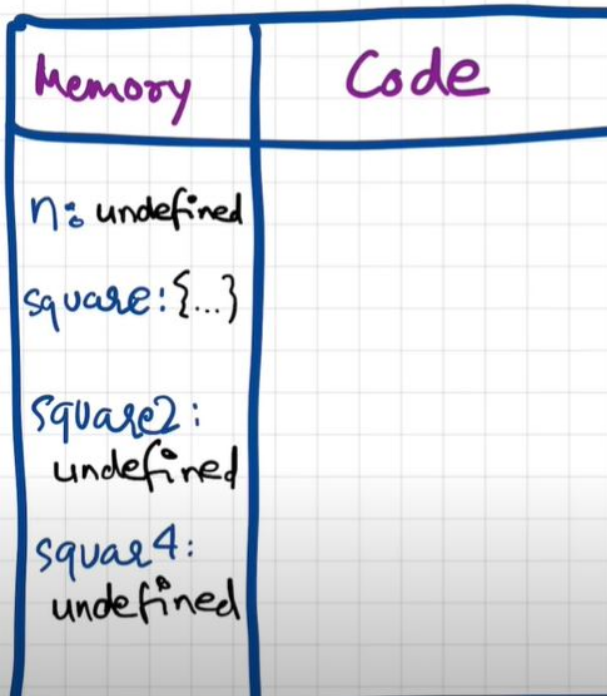 Memory
Code
n: undefined
square:{...}
square2:
undefined
squar4:
undefined